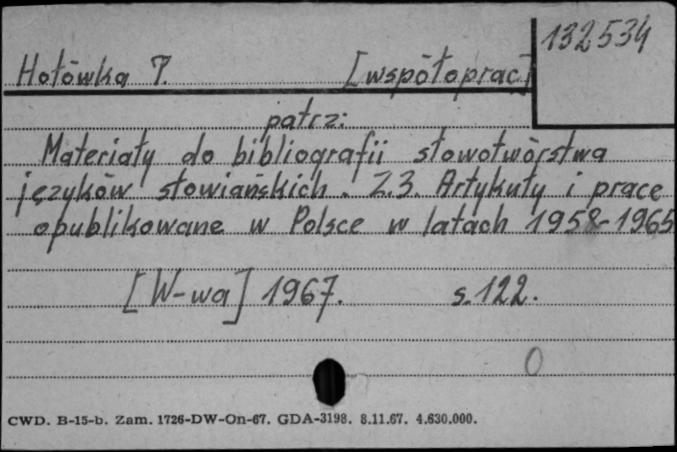 132534
Hołówka T. [współoprac]
patrz:
Materiały do bibliografii słowotwórstwa
języków słowiańskich. Z.3. Artykuły i prace
opublikowane w Polsce w latach 1958-1965
[W-wa] 1967. s.122.
0
CWD. B-15-b. Zam. 1726-DW-On-67. GDA-3198. 8.11.67. 4.630.000.